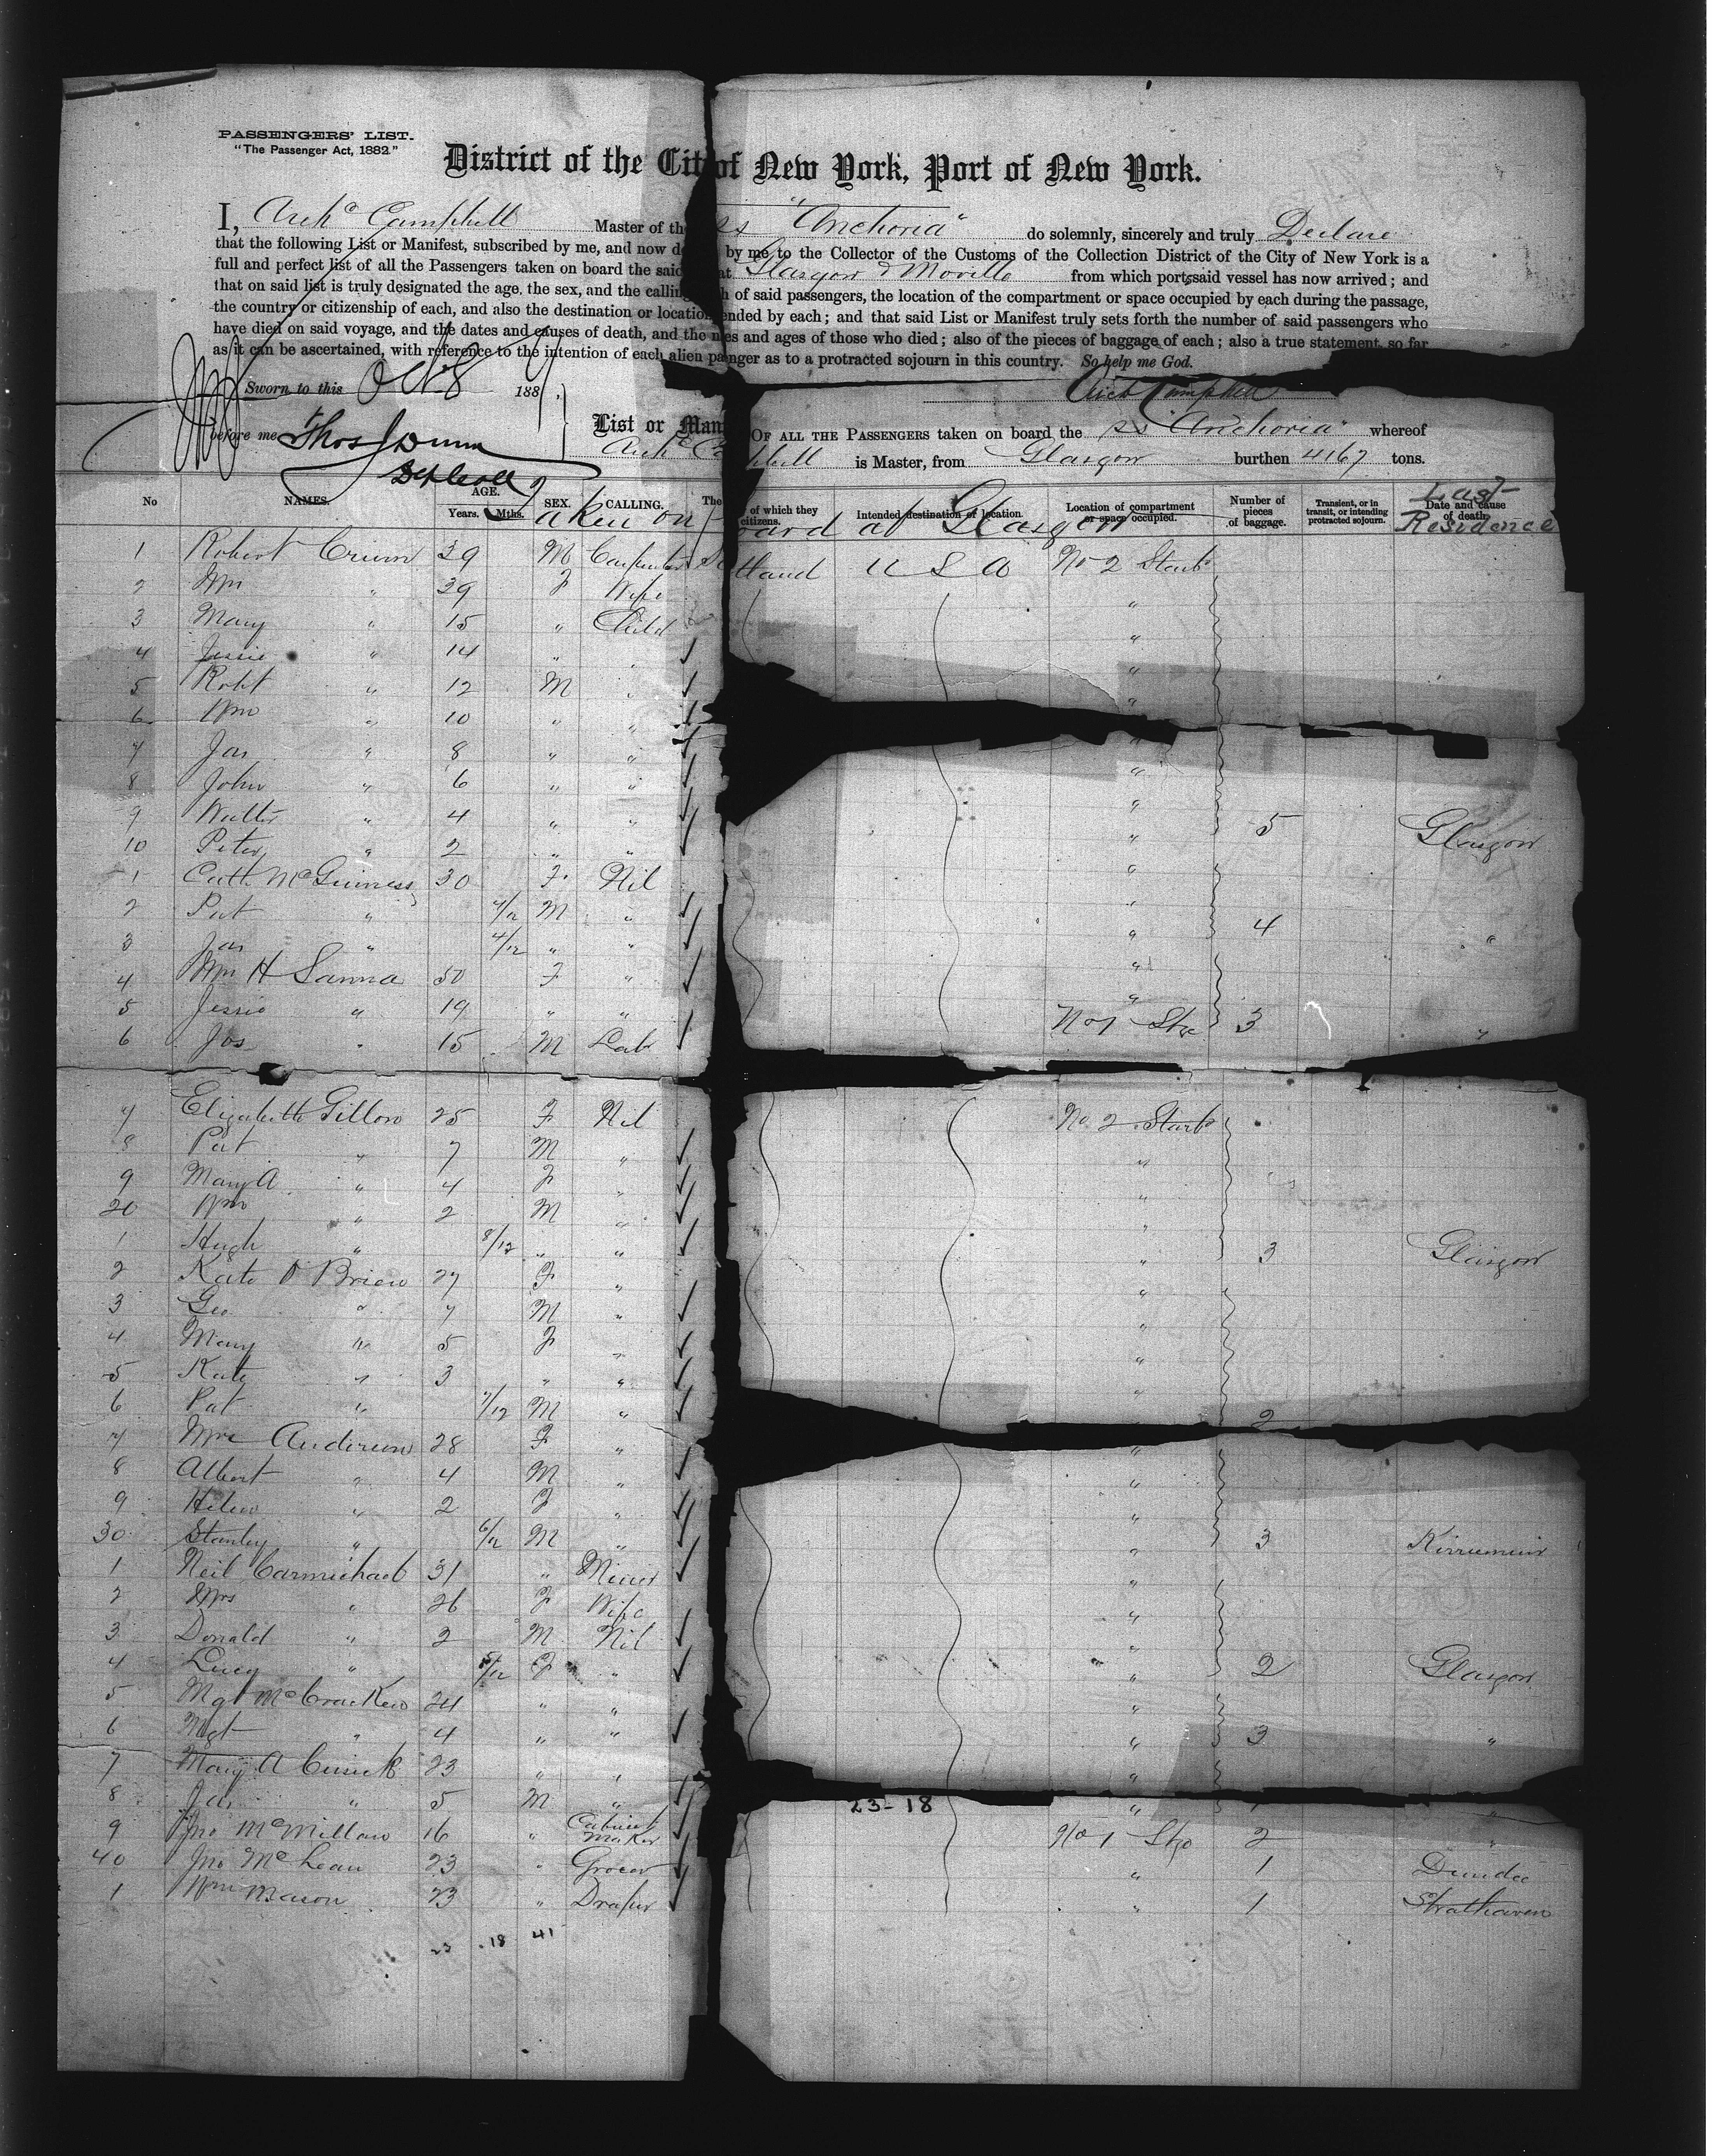 PASSENGERS' LIST.
"The Passenger Act, 1882."
District of the Cit of New York, Port of New York.
I, Archd Campbell Master of th SS "Anchoria" do solemnly, sincerely and truly Declare
that the following List or Manifest, subscribed by me, and now de by me to the Collector of the Customs of the Collection District of the City of New York is a
full and perfect list of all the Passengers taken on board the said at Glasgow & Moville from which ports said vessel has now arrived; and
that on said list is truly designated the age, the sex, and the calling h of said passengers, the location of the compartment or space occupied by each during the passage,
the country or citizenship of each, and also the destination or location ended by each; and that said List or Manifest truly sets forth the number of said passengers who
have died on said voyage, and the dates and causes of death, and the n es and ages of those who died; also of the pieces of baggage of each; also a true statement, so far
as it can be ascertained, with reference to the intention of each alien pa nger as to a protracted sojourn in this country. So help me God.
Sworn to this Oct 8 188 Arch Campbell
before me Thos J Dunn List or Man OF ALL THE PASSENGERS taken on board the SS "Anchoria" whereof
Dep Coll Archd Ca pbell is Master, from Glasgow burthen 4167 tons.
No NAMES. AGE. Years. Mths. SEX. CALLING. The of which they citizens. Intended destination or location. Location of compartment or space occupied. Number of pieces of baggage. Transient, or in transit, or intending protracted sojourn. Date and cause of death. Last Residence
Taken on board at Glasgow
1 Robert Crum 39 M Carpenter Sc tland U S A No 2 Starb
2 " 39 F Wife "
3 Mary " 15 " Child "
4 Jessie " 14 " " "
5 Robt " 12 M " "
6 Wm " 10 " " "
7 Jas " 8 " " "
8 John " 6 " " "
9 Walter " 4 " " "
10 Peter " 2 " " " 5 Glasgow
1 Cath McGuiness 30 F Nil "
2 Pat " M " "
3 Jas " 4/12 " " " 4 "
4 H Sanna 50 F " "
5 Jessie " 19 " " "
6 Jos " 15 M Lab No 1 Stge 3 "
7 Elizabeth Gillon 25 F Nil No 2 Starb
8 Pat " 7 M " "
9 Mary A " 4 F " "
20 Wm " 2 M " "
1 Hugh " 8/12 " " " 3 Glasgow
2 Kate O'Brien 27 F " "
3 Geo " 7 M " "
4 Mary " 5 F " "
5 Kate " 3 " " "
6 Pat " 7/12 M " 2
7 Mrs Anderson 28 F " "
8 Albert " 4 M " "
9 Helen " 2 F " "
30 Stanley " 6/12 M " " 3 Kirriemuir
1 Neil Carmichael 31 " Miner "
2 Mrs " 26 F Wife "
3 Donald " 2 M Nil "
4 Lucy " 5/12 F " " 2 Glasgow
5 Mgt McCracken 24 " " "
6 Mgt " 4 " " " 3 "
7 Mary A Cusick 23 " " "
8 Jas " 5 M " " "
23-18
9 Jno McMillan 16 " Cabinet Maker No 1 Stge 2 "
40 Jno McLean 23 " Grocer " 1 Dundee
1 Wm Mason 23 " Draper " 1 Strathaven
23 18 41